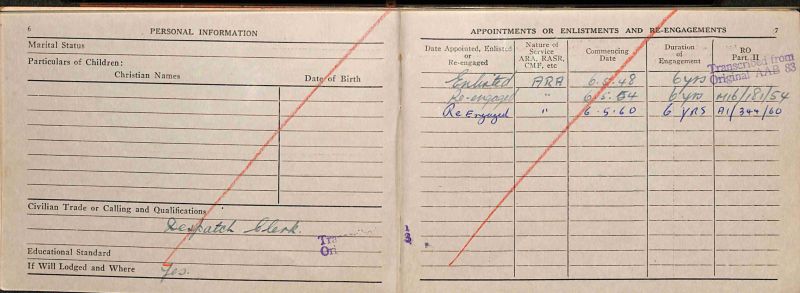 6
PERSONAL INFORMATION
Marital Status
Particulars of Children:
Christian Names
Date of Birth
Civilian Trade or Calling and Qualifications
Despatch Clerk.
Educational Standard
If Will Lodged and Where
Yes.
7
APPOINTMENTS OR ENLISTMENTS AND RE-ENGAGEMENTS
Date Appointed, Enlisted or Re-engaged
Nature of Service ARA, RASR, CMF, etc
Commencing Date
Duration of Engagement
RO Part II
Transcribed from
Original AAB 83
Enlisted ARA 6.5.48 6 yrs
Re-engaged " 6.5.54 6 yrs A16/181/54
Re Engaged " 6.5.60 6 YRS A1/344/60